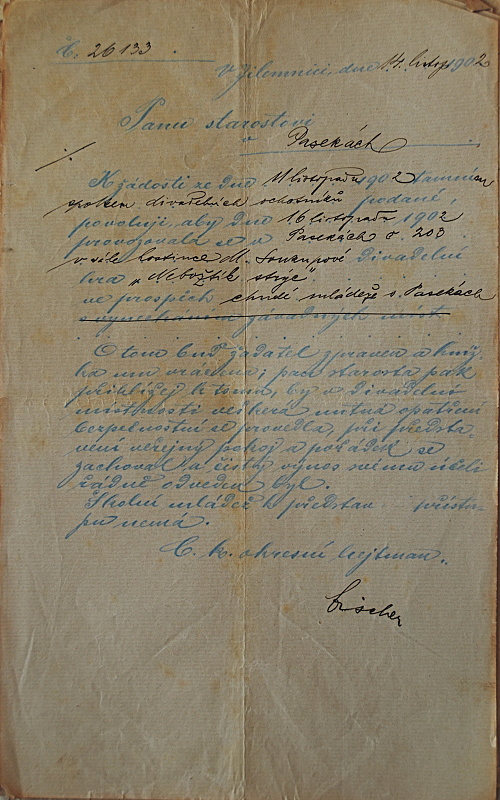 Č. 26133.
V Jilemnici, dne 14. listop. 1902
Panu starostovi
v Pasekách
K žádosti ze dne 11 listopadu 1902 tamním
spolkem divadelních ochotníků podané,
povoluji, aby dne 16 listopadu 1902
provozovala se v Pasekách č. 203
v sále hostince M. Soukupové divadelní
hra „Nebožtík strýc“
ve prospěch chudé mládeže v Pasekách
s vynecháním závadných míst.
O tom buď žadatel zpraven a kníž-
ka mu vrácena; pan starosta pak
přihlížej k tomu, by v divadelní
místnosti veškerá nutná opatření
bezpečnostní se provedla, při předsta-
vení veřejný pokoj a pořádek se
zachoval a čistý výnos svému účeli
řádně odveden byl.
Školní mládež k představ přístu-
pu nemá.
C. k. okresní hejtman.